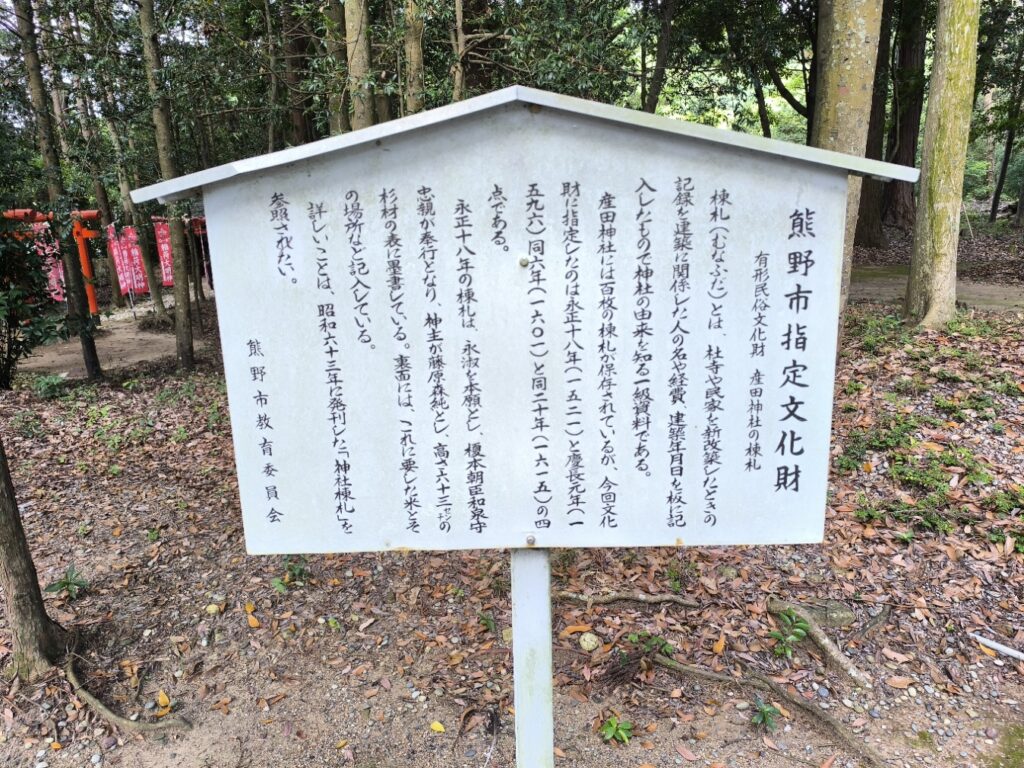 熊野市指定文化財
有形民俗文化財 産田神社の棟札
棟札(むなふだ)とは、社寺や民家を新改築したときの
記録を建築に関係した人の名や経費、建築年月日を板に記
入したもので神社の由来を知る一級資料である。
産田神社には百枚の棟札が保存されているが、今回文化
財に指定したのは永正十八年(一五二一)と慶長元年(一
五九六)同六年(一六〇一)と同二十年(一六一五)の四
点である。
永正十八年の棟札は、永淑を本願とし、榎本朝臣和泉守
忠親が奉行となり、神主が藤原森純とし、高さ六十三㌢の
杉材の表に墨書している。裏面には、これに要した米とそ
の場所など記入している。
詳しいことは、昭和六十三年に発刊した「神社棟札」を
参照されたい。
熊野市教育委員会